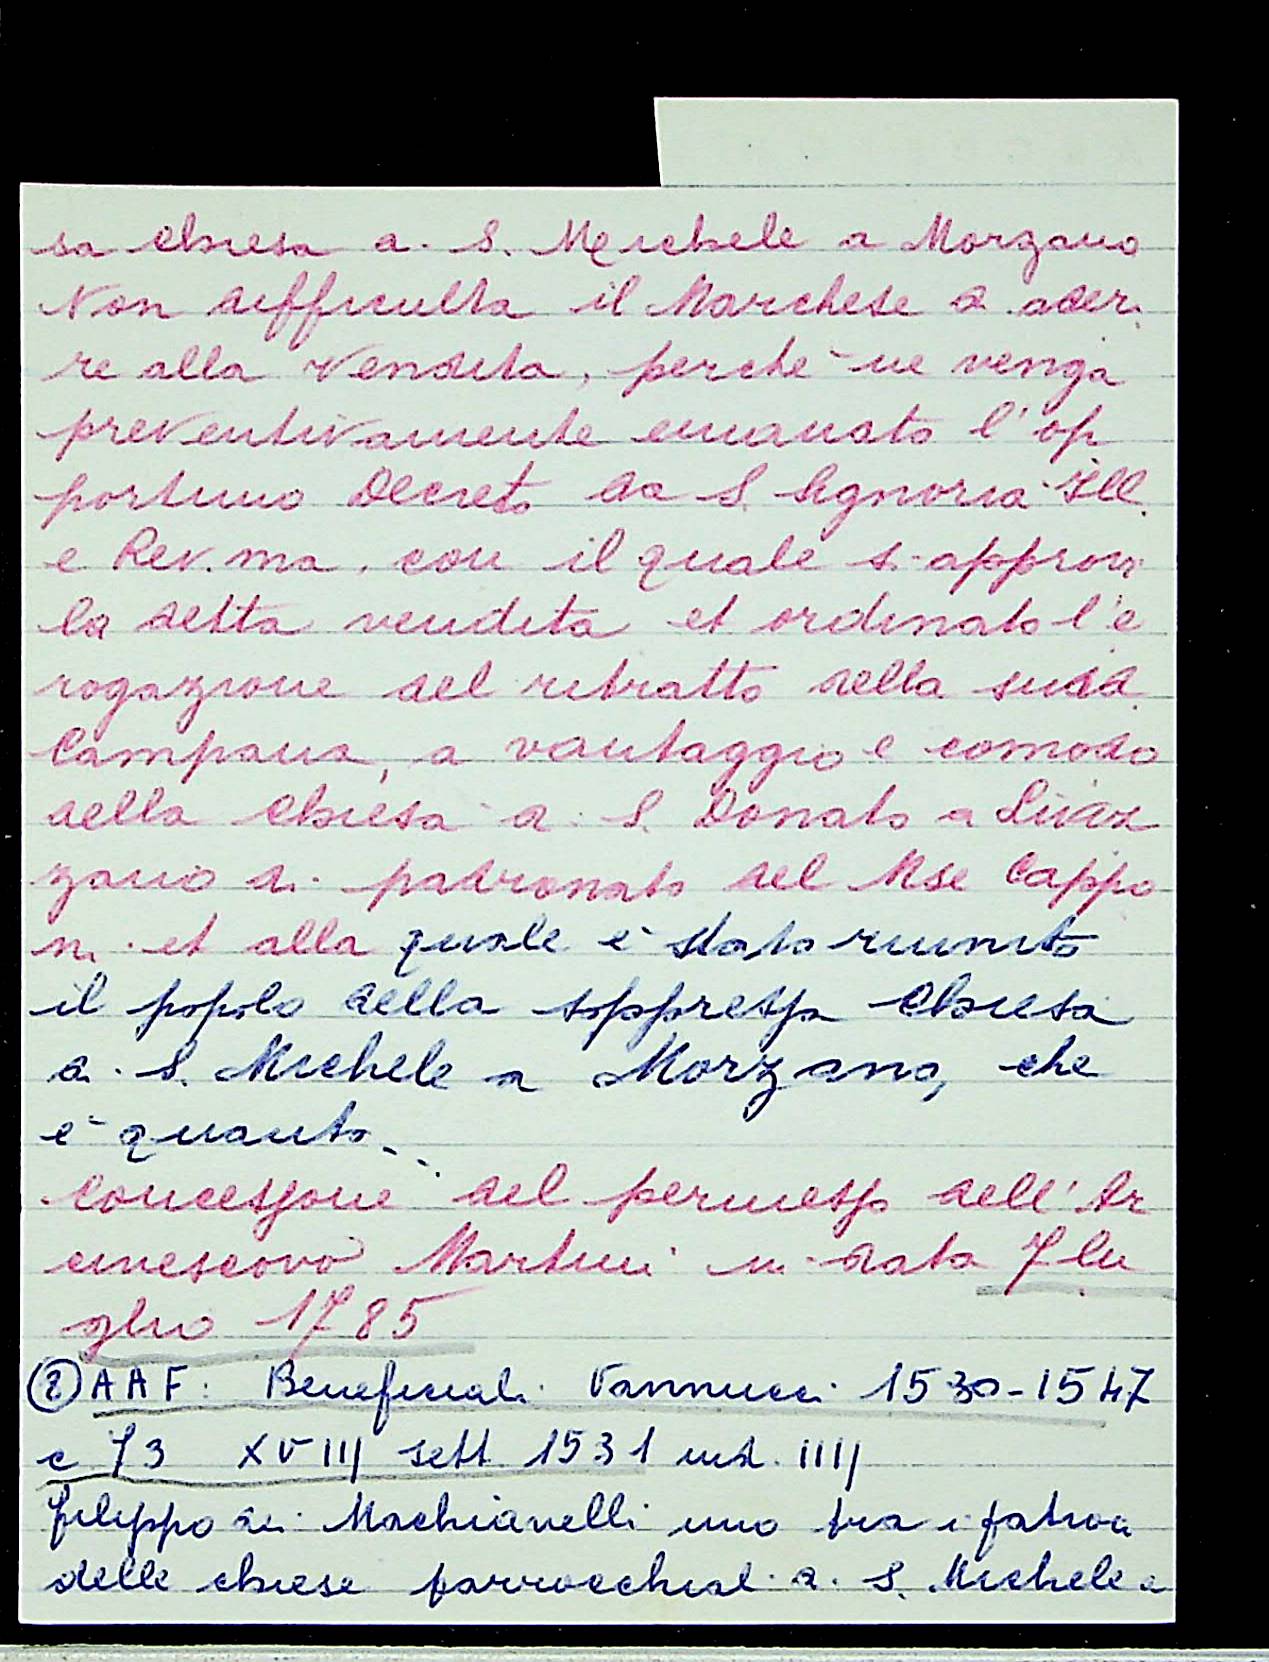 sa chiesa di S. Michele a Morzano
Non difficulta il Marchese a aderi
re alla vendita, perchè ne venga
preventivamente emanato l'op
portuno Decreto da S. Signoria Ill.
e Rev.ma, con il quale si approvi
la detta vendita et ordinato l'e
rogazione del retratto della sudd.
Campana, a vantaggio e comodo
della chiesa di S. Donato a Liviz
zano di patronato del Mse Cappo
ni et alla quale è stato riunito
il popolo della soppressa Chiesa
di S. Michele a Morzano, che
è quanto...
Concessione del permesso dell'Ar
civescovo Martini in data 7 lu
glio 1785
② AAF: Beneficiali Vannucci 1530-1547
c 73 XVIII sett. 1531 ind. IIII
Filippo di Machiavelli uno tra i patroni
delle chiese parrocchiali di S. Michele a